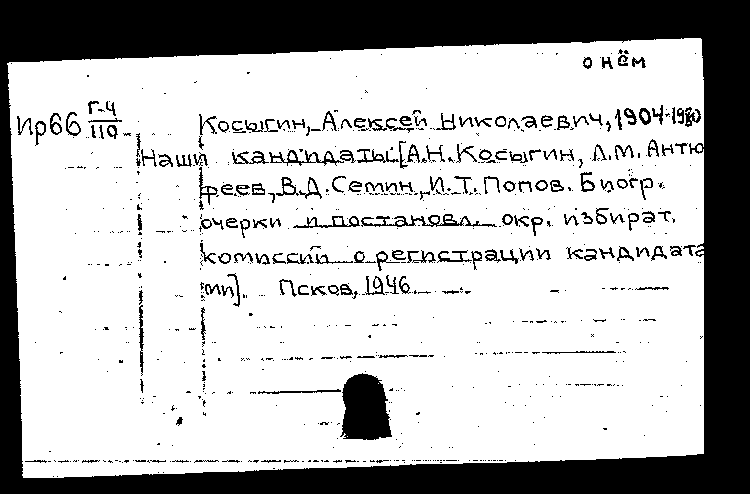 о нём
Ир66 Г-4/110
Косыгин, Алексей Николаевич, 1904-1980
Наши кандидаты: [А.Н. Косыгин, Л.М. Антю
феев, В.Д. Семин, И.Т. Попов. Биогр.
очерки и постановл. окр. избират.
комиссий о регистрации кандидата
ми]. Псков, 1946.